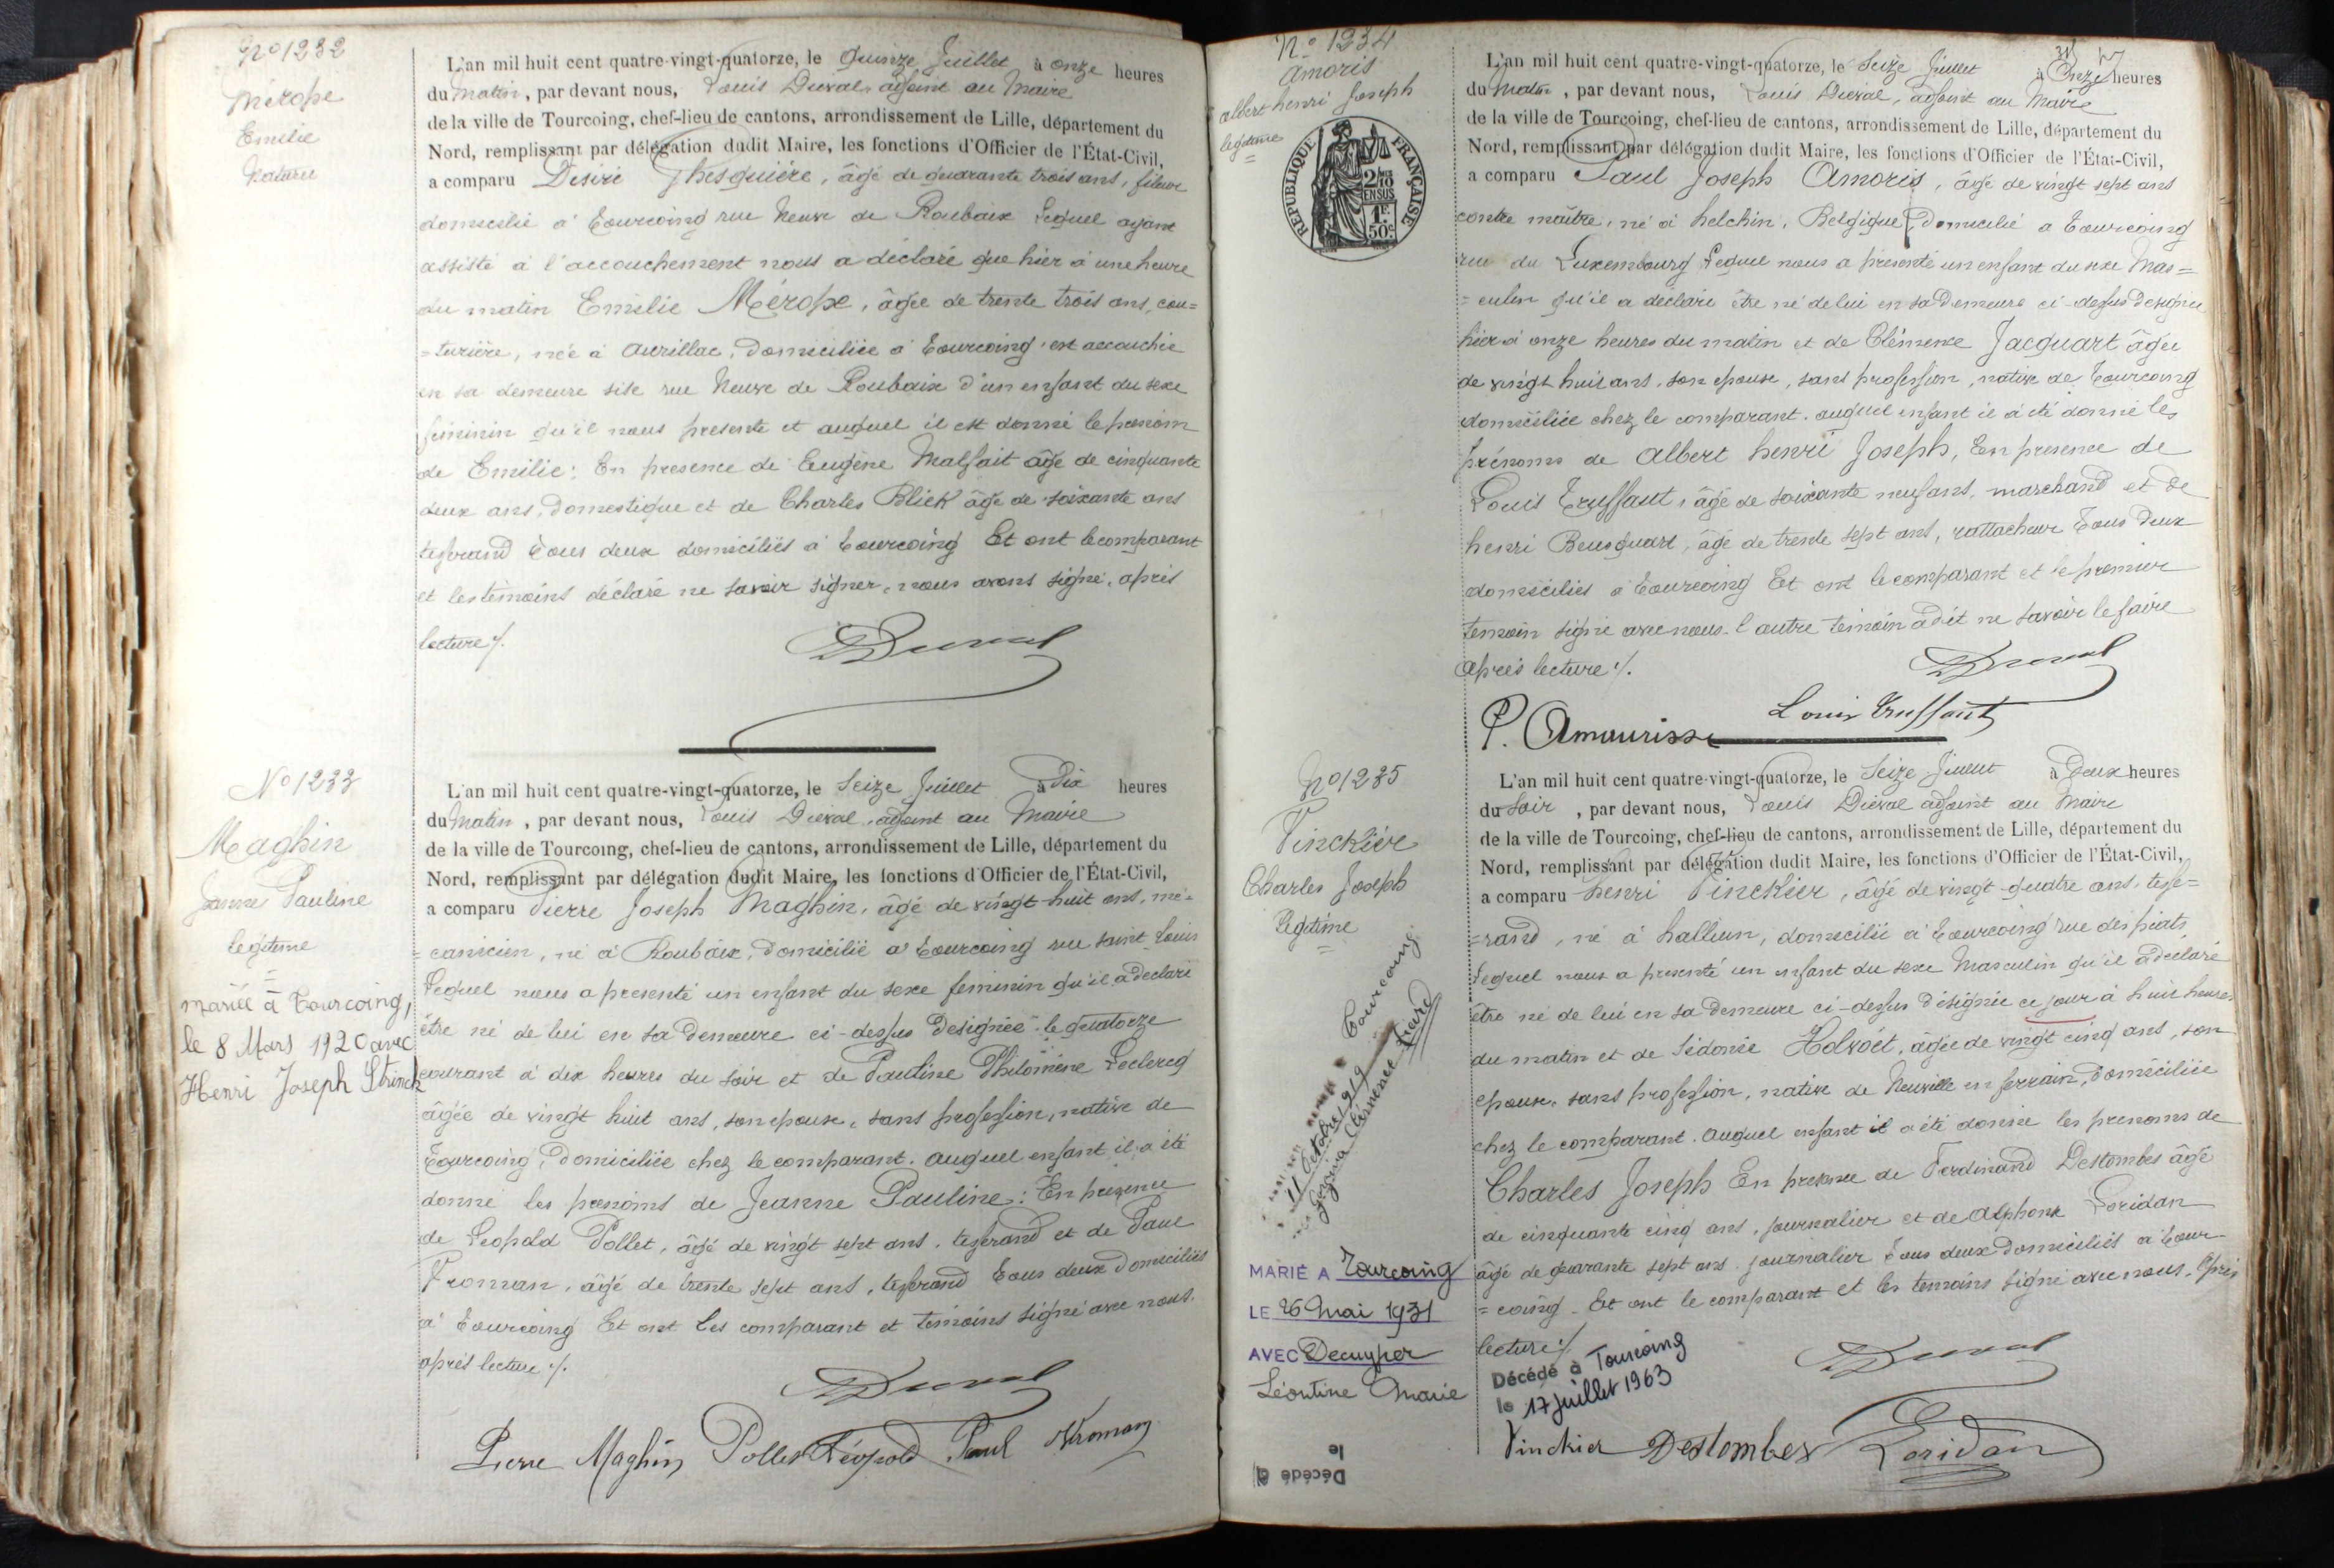 No 1232
Mérope
Emilie
Naturel
L'an mil huit cent quatre-vingt-quatorze, le Quinze Juillet à onze heures
du Matin, par devant nous, Louis Dieval, adjoint au Maire
de la ville de Tourcoing, chef-lieu de cantons, arrondissement de Lille, département du
Nord, remplissant par délégation dudit Maire, les fonctions d'Officier de l'État-Civil,
a comparu Desiré Ghesquière, âgé de quarante trois ans, fileur
domicilié à Tourcoing rue Neuve de Roubaix Lequel ayant
assisté à l'accouchement nous a déclaré que hier à une heure
du matin Emilie Mérope, âgée de trente trois ans, cou=
=turière, née à Aurillac, domiciliée à Tourcoing, est accouchée
en sa demeure sise rue Neuve de Roubaix d'un enfant du sexe
féminin qu'il nous presente et auquel il est donné le prénom
de Emilie: En presence de Eugène Malfait âgé de cinquante
deux ans, domestique et de Charles Bliek âgé de soixante ans
tisserand tous deux domiciliés à Tourcoing Et ont le comparant
et les témoins déclaré ne savoir signer, nous avons signé, après
lecture ./.
LDieval
No 1233
Maghin
Jeanne Pauline
legitime
=
mariée à Tourcoing,
le 8 Mars 1920 avec
Henri Joseph Strinck
L'an mil huit cent quatre-vingt-quatorze, le Seize Juillet à dix heures
du Matin, par devant nous, Louis Dieval, adjoint au Maire
de la ville de Tourcoing, chef-lieu de cantons, arrondissement de Lille, département du
Nord, remplissant par délégation dudit Maire, les fonctions d'Officier de l'État-Civil,
a comparu Pierre Joseph Maghin, âgé de vingt-huit ans, mé=
=canicien, né à Roubaix, domicilié à Tourcoing rue saint Louis
Lequel nous a presenté un enfant du sexe feminin qu'il a declaré
être né de lui en sa demeure ci-dessus designée le quatorze
courant à dix heures du soir et de Pauline Philomène Leclercq
âgée de vingt huit ans, son epouse, sans profession, native de
Tourcoing, domiciliée chez le comparant. auquel enfant il a été
donné les prenoms de Jeanne Pauline: En presence
de Leopold Pollet, âgé de vingt sept ans, tisserand et de Paul
Vroman, âgé de trente sept ans, tisserand tous deux domiciliés
à Tourcoing Et ont les comparant et témoins signé avec nous.
après lecture ./.
LDieval
Pierre Maghin Pollet Léopold Paul Vroman
No 1234
Amoris
albert henri Joseph
legitime
=
RÉPUBLIQUE FRANÇAISE
2/10
EN SUS
1F.
50c.
L'an mil huit cent quatre-vingt-quatorze, le Seize Juillet à Onze heures
du Matin, par devant nous, Louis Dieval, adjoint au Maire
de la ville de Tourcoing, chef-lieu de cantons, arrondissement de Lille, département du
Nord, remplissant par délégation dudit Maire, les fonctions d'Officier de l'État-Civil,
a comparu Paul Joseph Amoris, âgé de vingt sept ans
contre maître, né à helchin, Belgique, domicilié a Tourcoing
rue du Luxembourg Lequel nous a presenté un enfant du sexe Mas=
=culin qu'il a declaré être né de lui en sa demeure ci-dessus designée
hier à onze heures du matin et de Clémence Jacquart âgée
de vingt huit ans, son epouse, sans profession, native de Tourcoing
domiciliée chez le comparant. auquel enfant il a été donné les
prénoms de Albert henri Joseph, En presence de
Louis Truffaut, âgé de soixante neuf ans, marchand et de
henri Beusquart, âgé de trente sept ans, rattacheur tous deux
domiciliés à Tourcoing Et ont le comparant et le premier
temoin signé avec nous. l'autre témoin a dit ne savoir le faire
Après lecture ./.
LDieval
P. Amourisse Louis Truffaut
No 1235
Vinckier
Charles Joseph
Legitime
=
Tourcoing
11 octobre 1919
MARIÉ A Tourcoing
LE 26 Mai 1931
AVEC Decuyper
Léontine Marie
Décédé à
le
L'an mil huit cent quatre-vingt-quatorze, le Seize Juillet à Deux heures
du soir, par devant nous, Louis Diéval adjoint au Maire
de la ville de Tourcoing, chef-lieu de cantons, arrondissement de Lille, département du
Nord, remplissant par délégation dudit Maire, les fonctions d'Officier de l'État-Civil,
a comparu henri Vinckier, âgé de vingt-quatre ans, tisse=
=rand, né à halluin, domicilié à Tourcoing rue des piats
Lequel nous a presenté un enfant du sexe Masculin qu'il a déclaré
être né de lui en sa demeure ci-dessus désignée ce jour à huit heures
du matin et de Sidonie Holvoët, âgée de vingt cinq ans, son
epouse, sans profession, native de Neuville en ferrain, domiciliée
chez le comparant. Auquel enfant il a été donné les prenoms de
Charles Joseph En presence de Ferdinand Destombes âgé
de cinquante cinq ans, journalier et de Alphonse Loridan
âgé de quarante sept ans journalier tous deux domiciliés à Tour-
=coing. Et ont le comparant et les temoins signé avec nous. Après
lecture ./.
Décédé à Tourcoing
le 17 juillet 1963
LDieval
Vinckier Destombes Loridan